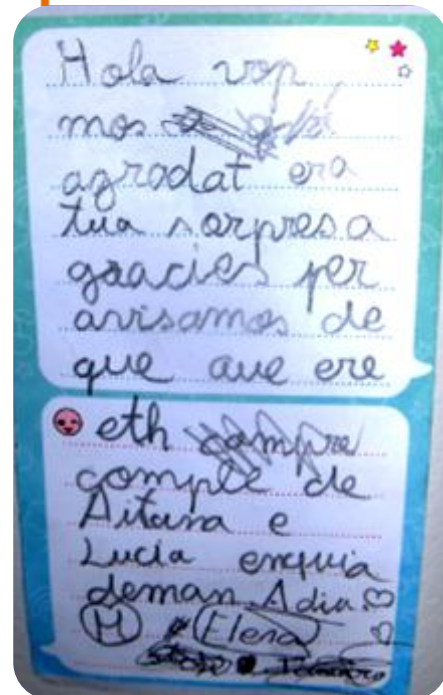 Hola vop
mos
agradat era
tua sorpresa
graacies per
avisamos de
que aue ere
eth
comple de
Aitana e
Lucía enquia
deman Adiu
M Elena